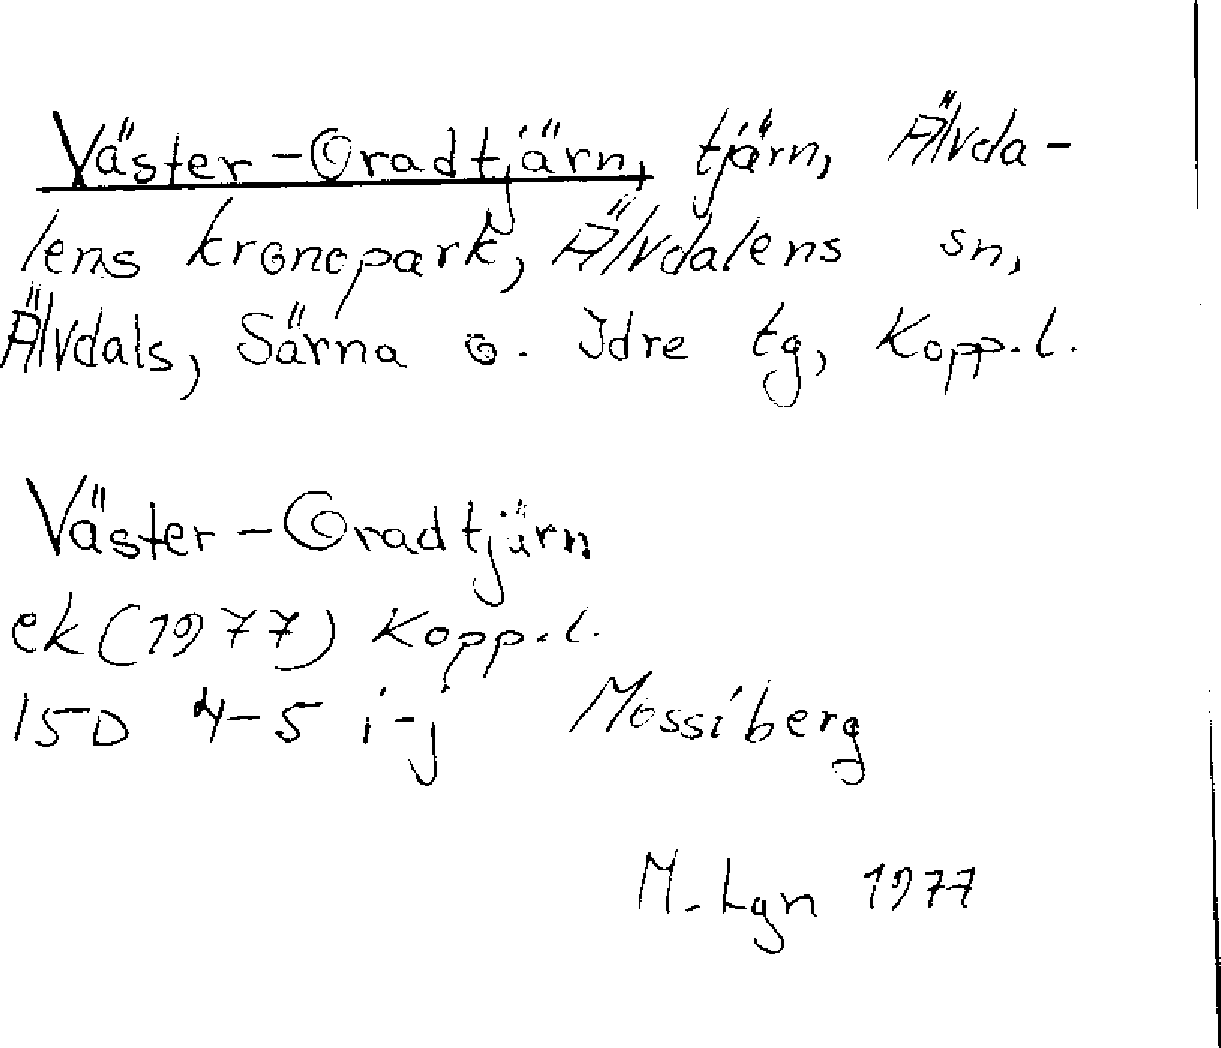 Väster-Oradtjärn, tjärn, Älvda-
lens kronopark, Älvdalens sn,
Älvdals, Särna o. Idre tg, Kopp.l.
Väster-Oradtjärn
ek (1977) Kopp.l.
15D 4-5 i-j Mossiberg
M. Lgn 1977